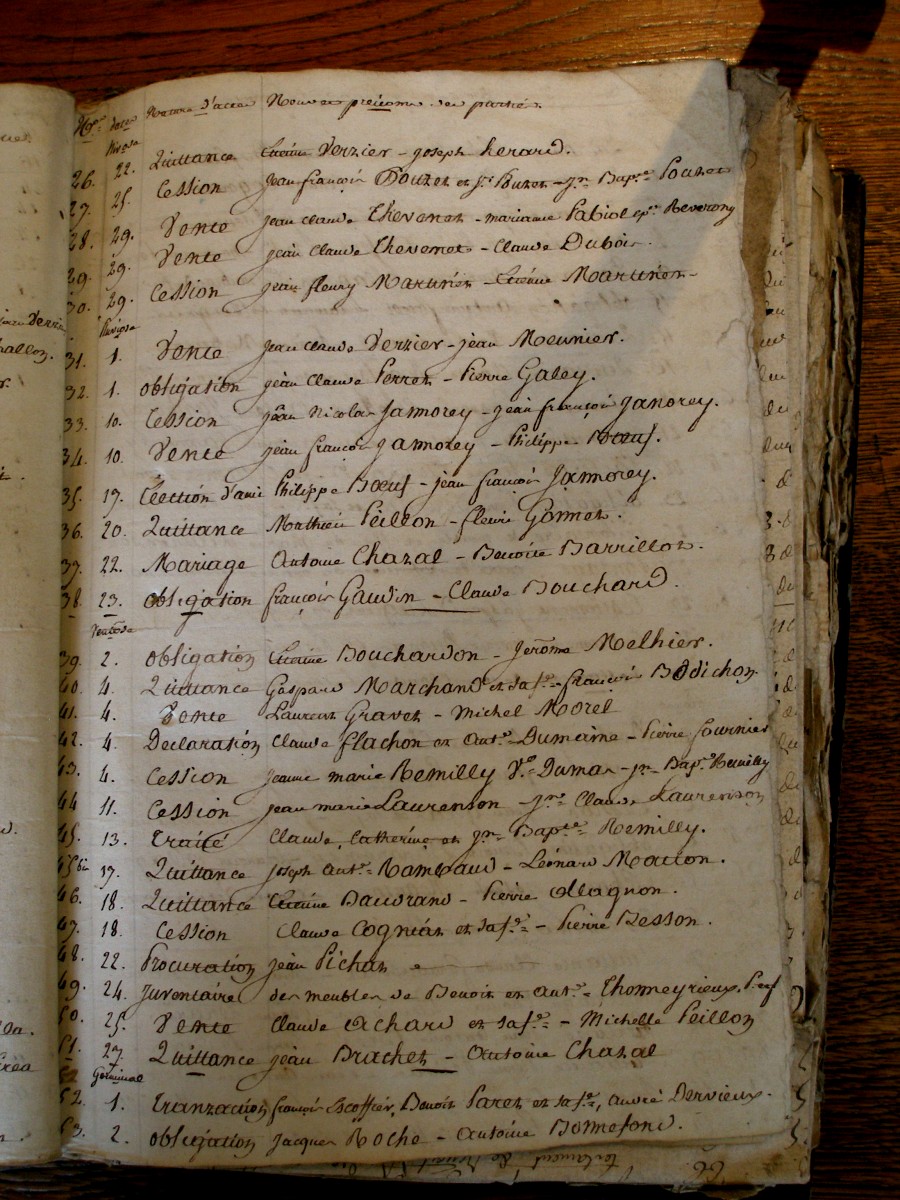 Nos dates Nature d'actes Noms et prénoms des parties.
Nivose
26. 22. Quittance Etienne Verzier - josephherard.
27. 25. Cession jean françois Douzet et - jn Bapte Pouzet
28. 29. Vente jean claude Thevenet - mariane Fabiol Reverony
29. 29. Vente jean Claude Thevenet - Claude Dubois.
30. 29. Cession jean fleury Martinien - Etienne Martinien -
Pluviose
31. 1. Vente jean claude Verzier - jean Meunier.
32. 1. obligation jean Claude Perret - Pierre Galey.
33. 10. Cession jean Nicolas Jamorey - jean françois Janorey.
34. 10. Vente jean françois Jamorey - Philippe Bœuf.
35. 17. Election d'ami Philippe Bœuf - jean françois Jamorey.
36. 20. Quittance Mathieu Peillon - fleurie Gonnet.
37. 22. Mariage Antoine Chazal - Benoite Barrillot.
38. 23. obligation françois Gaudin - Claude Bouchard.
Ventose
39. 2. obligation Etienne Bouchardon - Jerôme Melhier.
40. 4. Quittance Gaspard Marchand et sa fe - françois Bodichon
41. 4. Vente Laurent Gravet - Michel Morel
42. 4. Declaration Claude flachon et Ante Dumaine - Pierre fournier
43. 4. Cession jeanne marie Remilly Ve Dumas - jn Bapte Remilly
44 11. Cession jean marie Laurenson - jne Claude Laurenson
45. 13. Traité Claude, Catherine et jn Bapte Remilly.
45 bis 17. Quittance joseph Ante Rambaud - Léonard Matton.
46. 18. Quittance Etienne Baurand - Pierre Magnon.
47. 18. Cession Claude Cogniat et sa fe - Pierre Besson.
48. 22. Procuration jean Pichat
49. 24. Inventaire des meubles de Benoit et Ante Thonneyrieux.
50. 25. Vente Claude Achard et sa fe - Michelle Peillon
51. 27. Quittance jean Brachet - Antoine Chazal
Germinal
52. 1. Tranzaction françois Escoffier, Benoit Paret et sa fe, André Dervieux.
53. 2. obligation jacques Roche - Antoine Bonnefond.